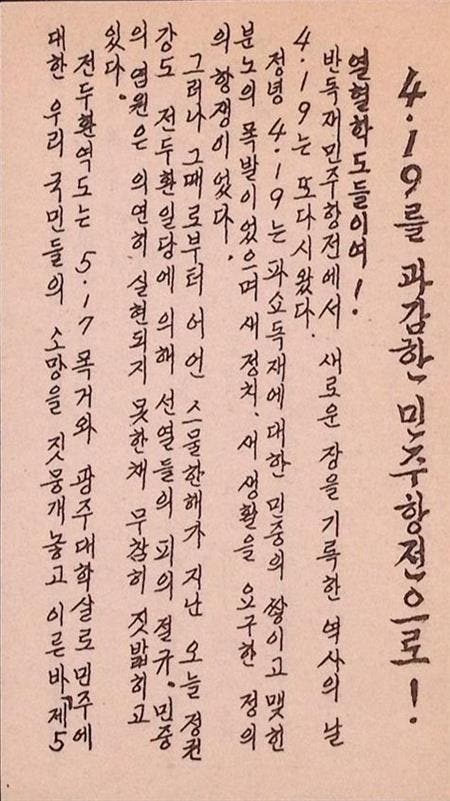 4·19를 과감한 민주항전으로!
열혈학도들이여!
반독재민주항전에서 새로운 장을 기록한 역사의 날
4·19는 또다시 왔다.
정녕 4·19는 파쇼독재에 대한 민중의 쌓이고 맺힌
분노의 폭발이었으며 새 정치, 새 생활을 요구한 정의
의 항쟁이었다.
그러나 그때로부터 어언 스물한해가 지난 오늘 정권
강도 전두환일당에 의해 선열들의 피의 절규, 민중
의 염원은 의연히 실현되지 못한채 무참히 짓밟히고
있다.
전두환역도는 5·17 폭거와 광주대학살로 민주에
대한 우리 국민들의 소망을 짓뭉개놓고 이른바 「제5